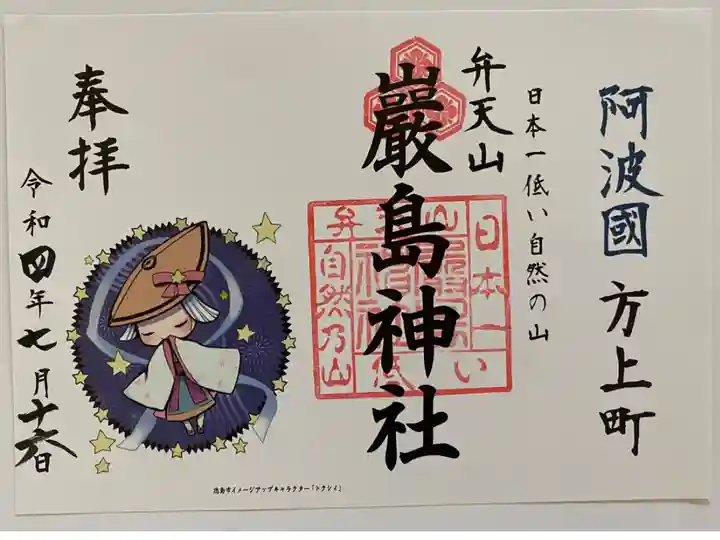 阿波國 方上町
日本一低い自然の山
弁天山
巖島神社
日本一
低い
自然乃山
弁天山
奉拝
令和四年七月十六日
徳島市イメージアップキャラクター「トクシイ」